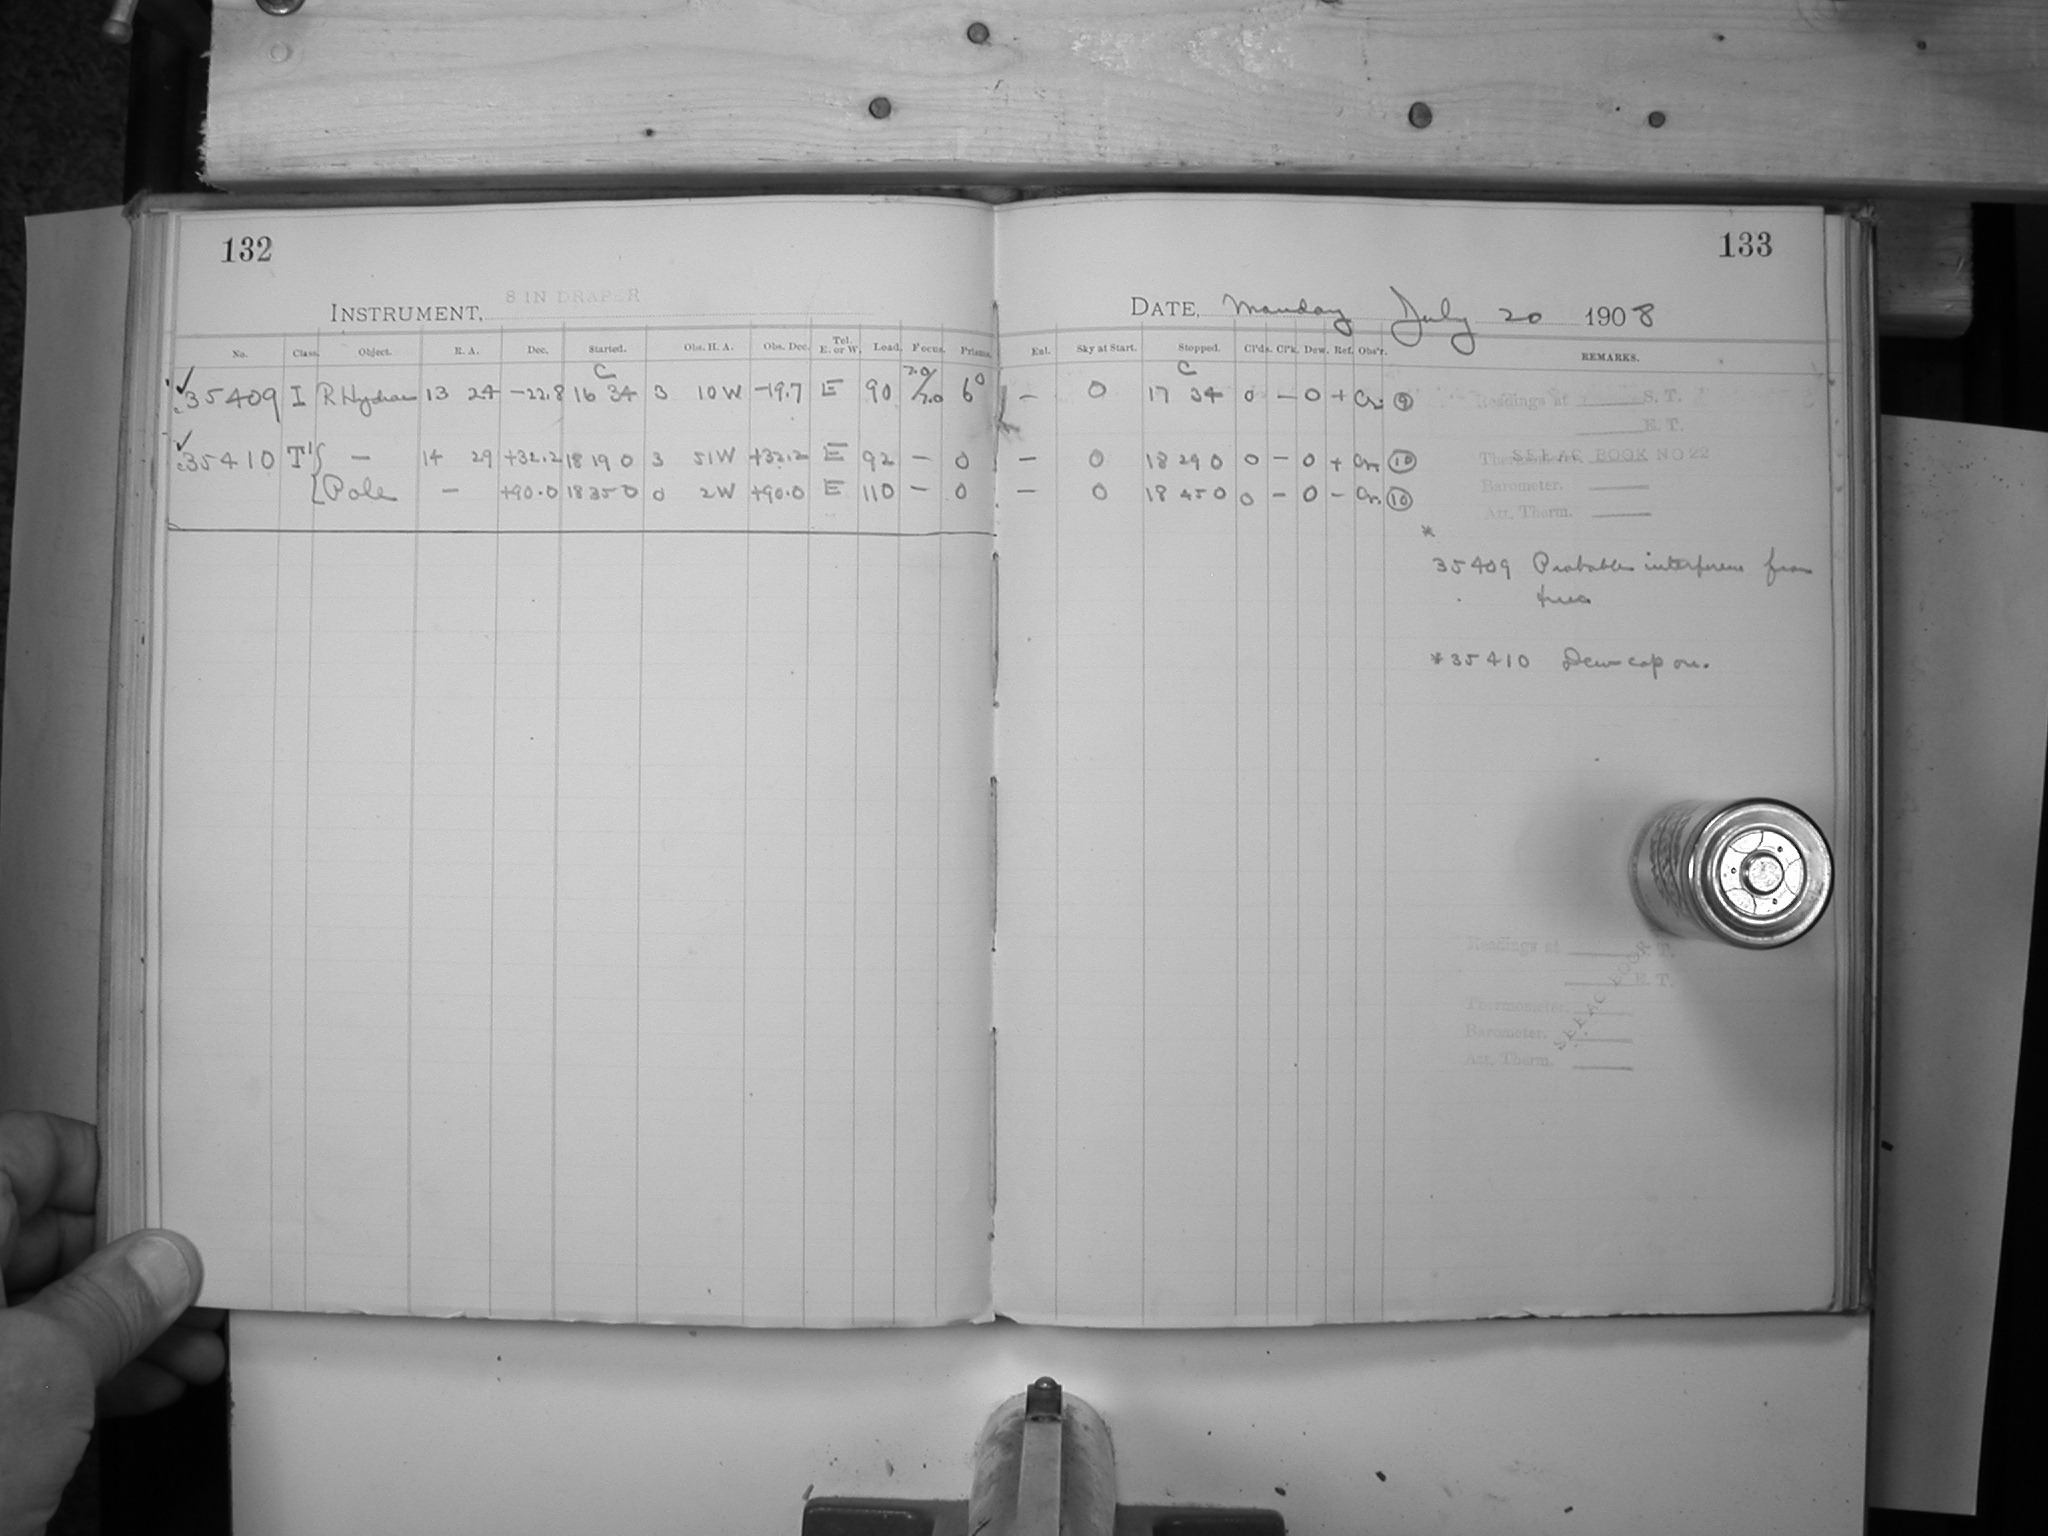 132
133
INSTRUMENT, 8 IN DRAPER
DATE, Monday July 20 1908
No. Class. Object. R. A. Dec. Started. Obs. H. A. Obs. Dec. Tel. E. or W. Load. Focus. Prisms. Enl. Sky at Start. Stopped. Cl'ds. Cl'k. Dew. Ref. Obs'r. REMARKS.
C C
✓ c35409 I R Hydrae 13 24 -22.8 16 34 3 10 W -19.7 E 90 7.0/7.0 6° - 0 17 34 0 - 0 + Cr. 9
Readings at S. T.
E. T.
✓ c35410 T' { - 14 29 +32.2 18 19 0 3 51 W +32.2 E 92 - 0 - 0 18 29 0 0 - 0 + Cr. 10
Thermometer. SEE AC BOOK NO 22
Pole - +90.0 18 35 0 0 2 W +90.0 E 110 - 0 - 0 18 45 0 0 - 0 - Cr. 10
Barometer.
Att. Therm.
*
35409 Probable interference from
tree
*35410 Dew cap on.
Readings at T.
E. T.
Thermometer.
Barometer.
Att. Therm.
SEE AC BOOK